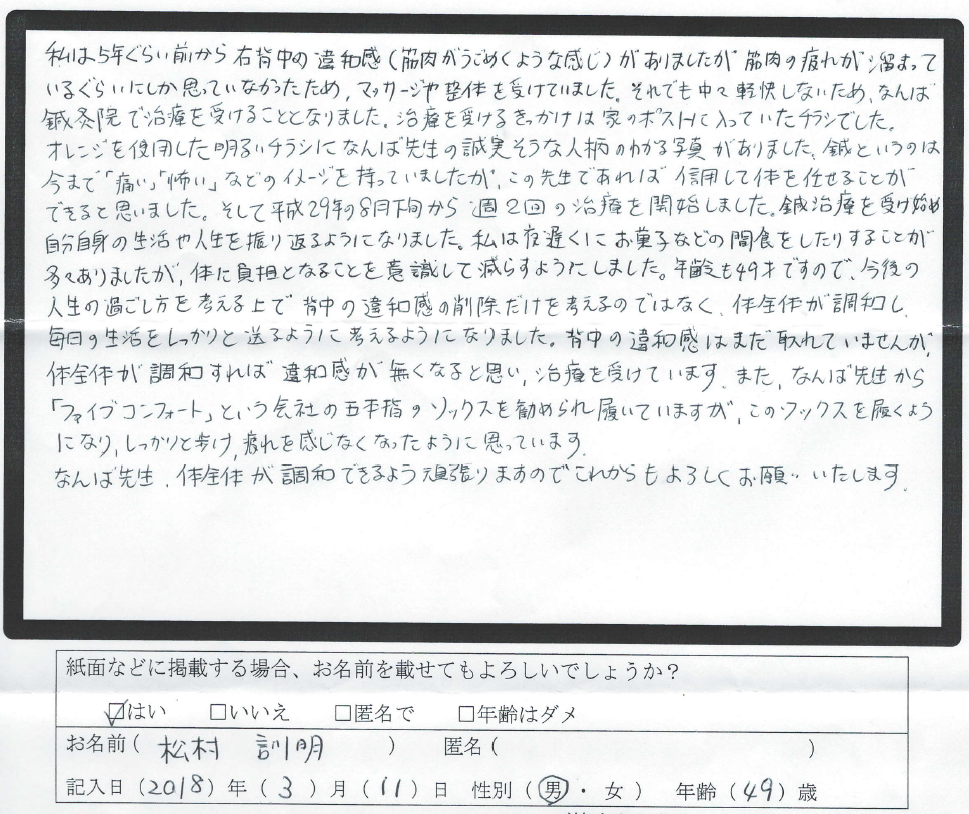 私は5年ぐらい前から右背中の違和感(筋肉がうごめくような感じ)がありましたが筋肉の疲れが溜まって
いるぐらいにしか思っていなかったため、マッサージや整体を受けていました。それでも中々軽快しないため、なんば
鍼灸院で治療を受けることとなりました。治療を受けるきっかけは家のポストに入っていたチラシでした。
オレンジを使用した明るいチラシになんば先生の誠実そうな人柄のわかる写真がありました。鍼というのは
今まで「痛い」「怖い」などのイメージを持っていましたが、この先生であれば信用して体を任せることが
できると思いました。そして平成29年の8月下旬から週2回の治療を開始しました。鍼治療を受け始め
自分自身の生活や人生を振り返るようになりました。私は夜遅くにお菓子などの間食をしたりすることが
多々ありましたが、体に負担となることを意識して減らすようにしました。年齢も49才ですので、今後の
人生の過ごし方を考える上で背中の違和感の削除だけを考えるのではなく、体全体が調和し、
毎日の生活をしっかりと送るように考えるようになりました。背中の違和感はまだ取れていませんが、
体全体が調和すれば違和感が無くなると思い、治療を受けています。また、なんば先生から
「ファイブコンフォート」という会社の五本指のソックスを勧められ履いていますが、このソックスを履くよう
になり、しっかりと歩け、疲れを感じなくなったように思っています。
なんば先生、体全体が調和できるよう頑張りますのでこれからもよろしくお願いいたします。
紙面などに掲載する場合、お名前を載せてもよろしいでしょうか?
☑はい □いいえ □匿名で □年齢はダメ
お名前( 松村 訓明 ) 匿名( )
記入日(2018)年(3)月(11)日 性別(男・女) 年齢(49)歳